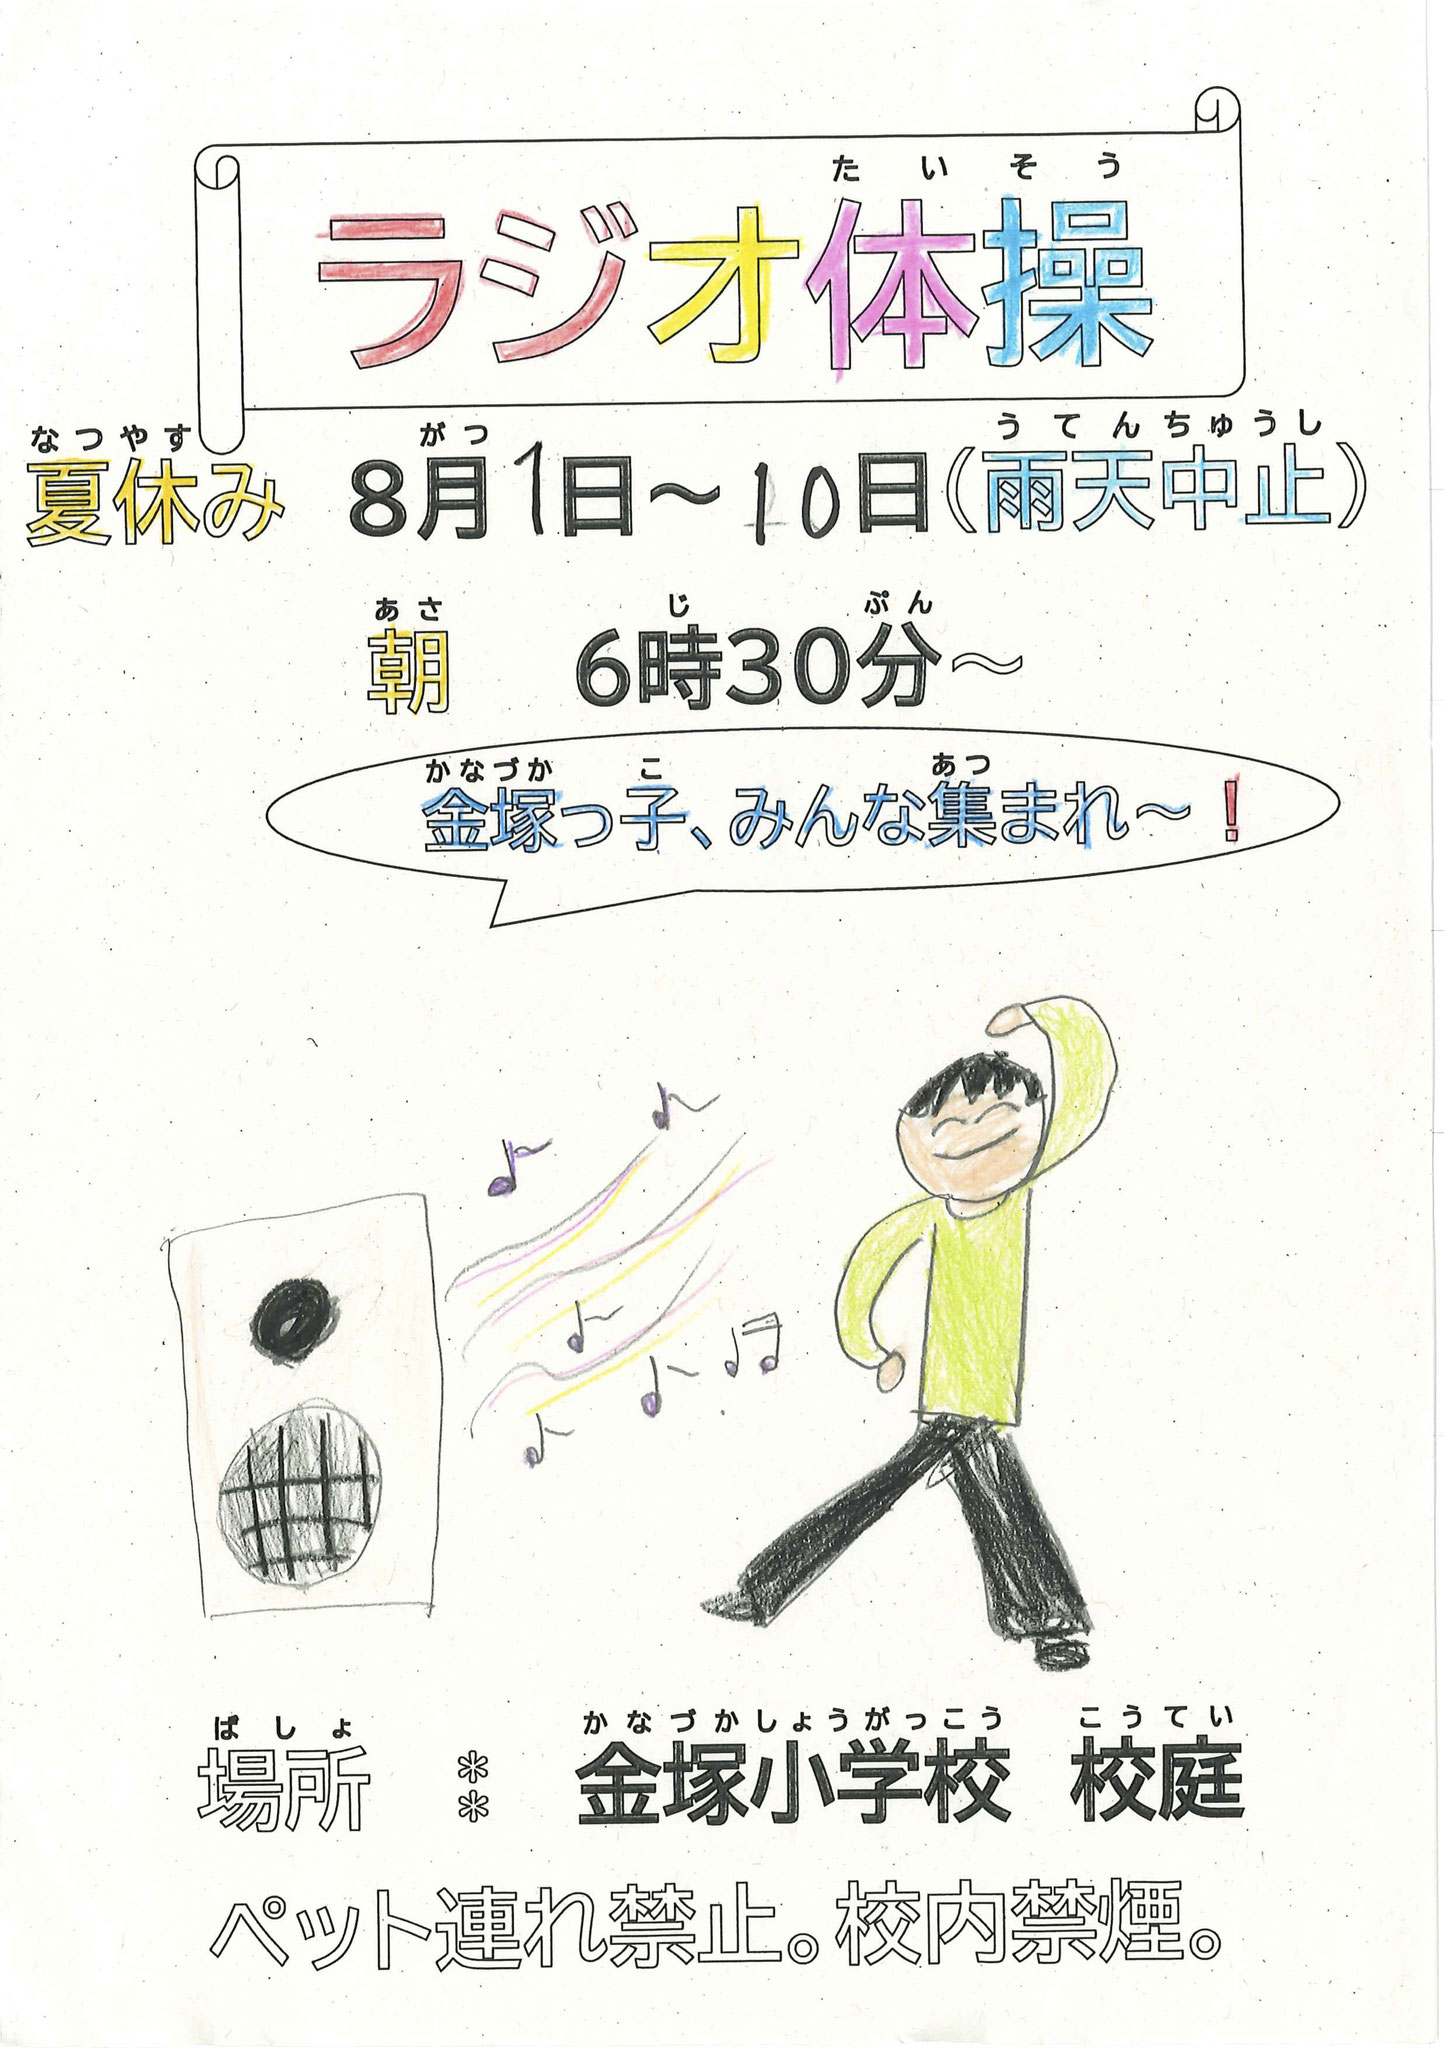 たいそう
ラジオ体操
なつやす がつ うてんちゅうし
夏休み 8月1日～10日(雨天中止)
あさ じ ぷん
朝 6時30分～
かなづか こ あつ
金塚っ子、みんな集まれ～!
ばしょ かなづかしょうがっこう こうてい
場所 : 金塚小学校 校庭
ペット連れ禁止。校内禁煙。